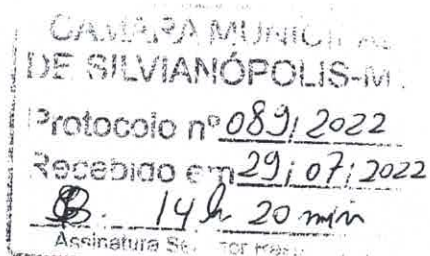 CÂMARA MUNICIPAL
DE SILVIANÓPOLIS-M
Protocolo nº 089/2022
Recebido em 29/07/2022
14 h 20 min
Assinatura